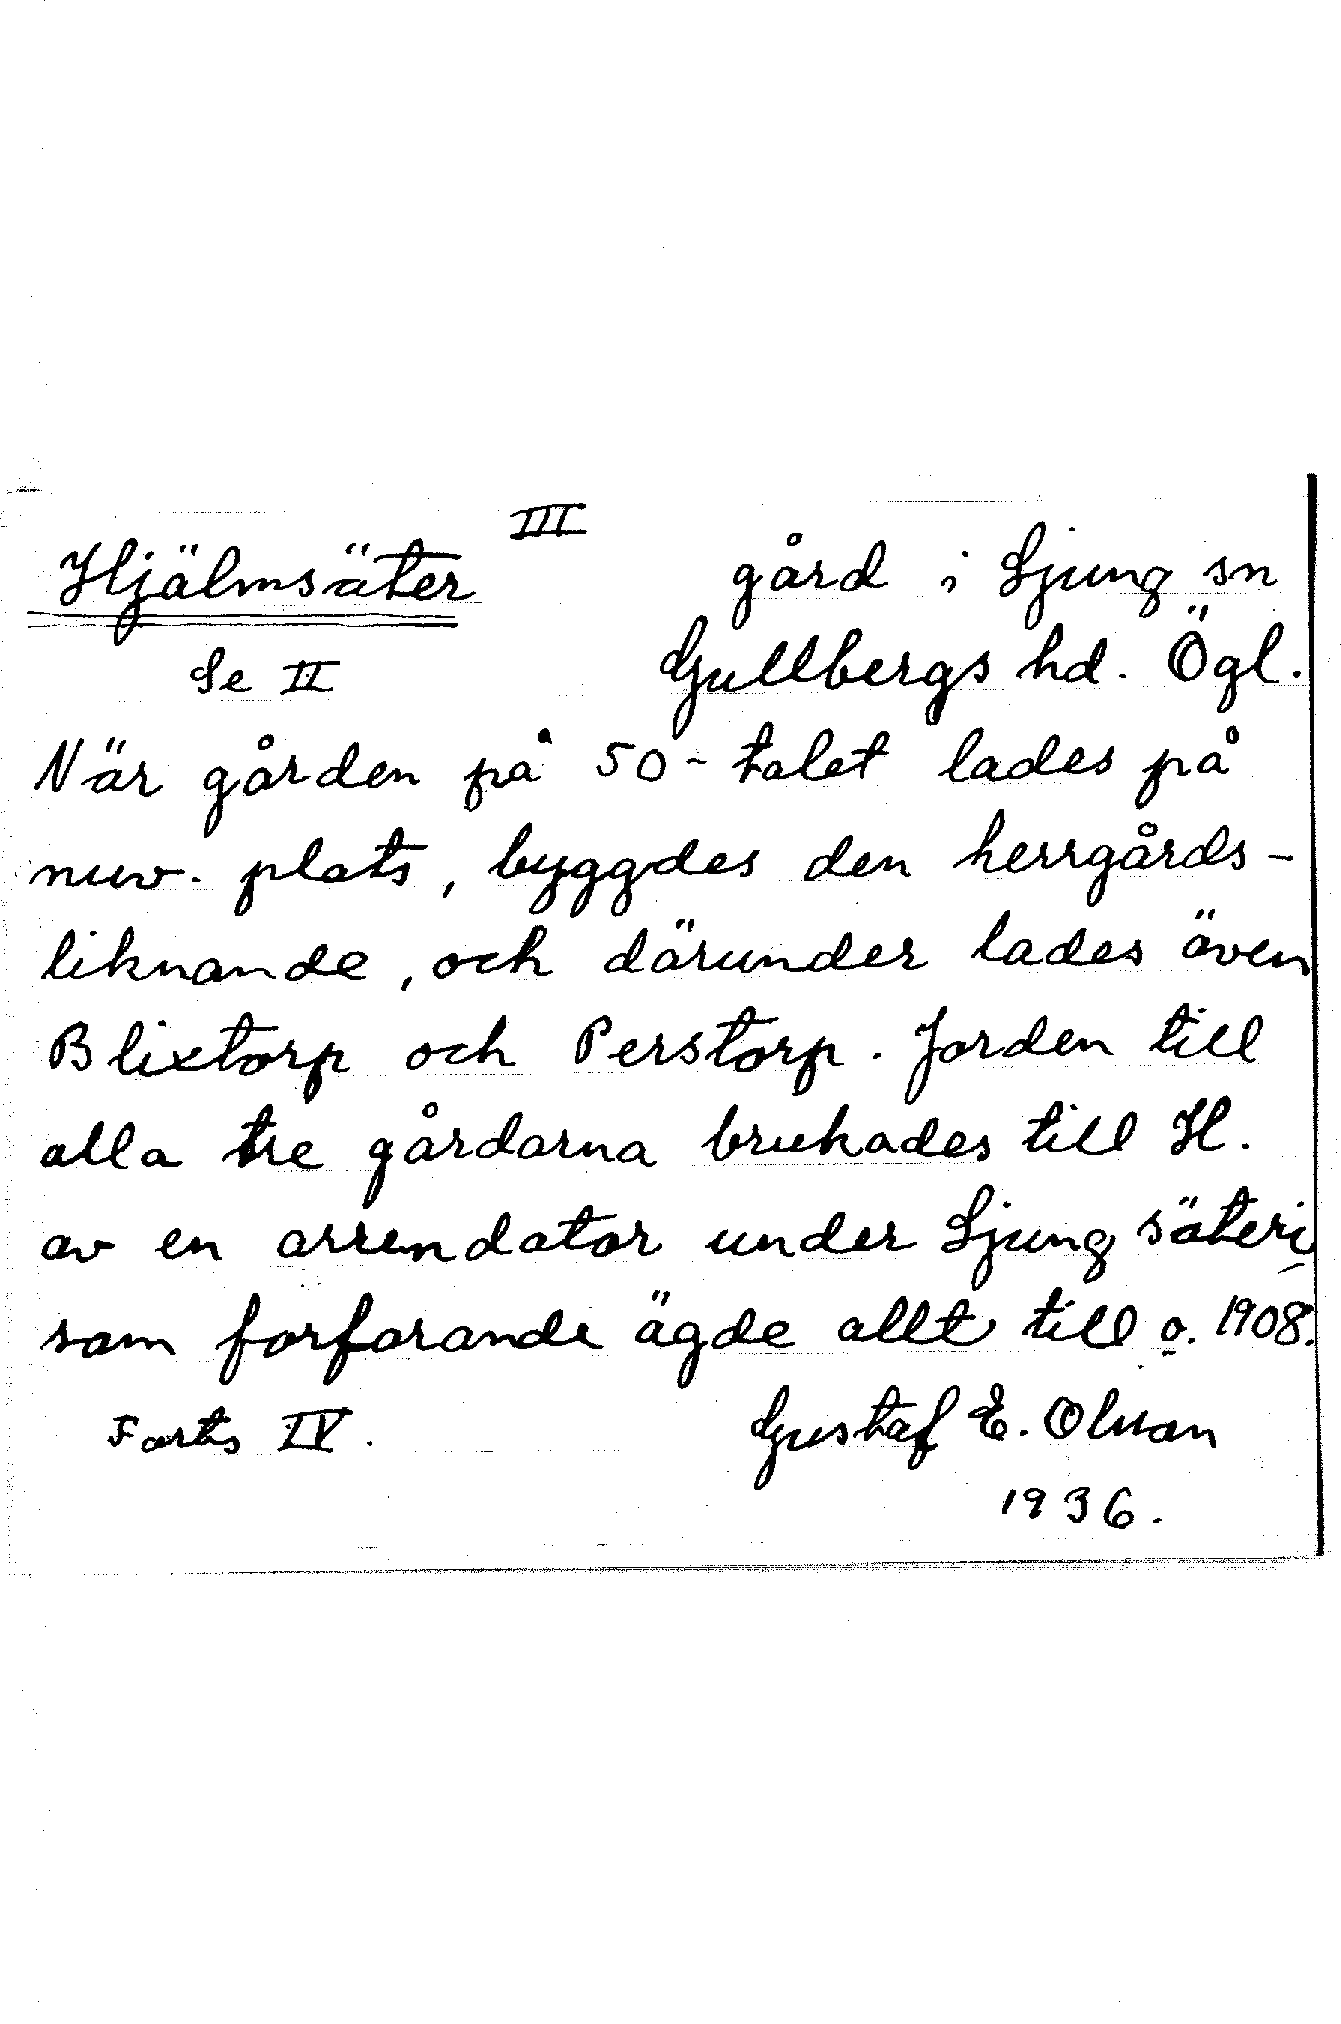 III
Hjälmsäter gård i Ljung sn
Se II Gullbergs hd. Ögl.
När gården på 50-talet lades på
nuv. plats, byggdes den herrgårds-
liknande, och därunder lades även
Blixtorp och Perstorp. Jorden till
alla tre gårdarna brukades till H.
av en arrendator under Ljung säteri
som forfarande ägde allt till o. 1908.
Forts IV. Gustaf E. Olsson
1936.